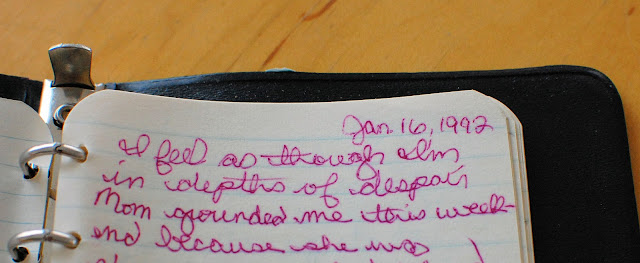 Jan 16, 1992
I feel as though I'm
in depths of despair
Mom grounded me this week-
end because she was